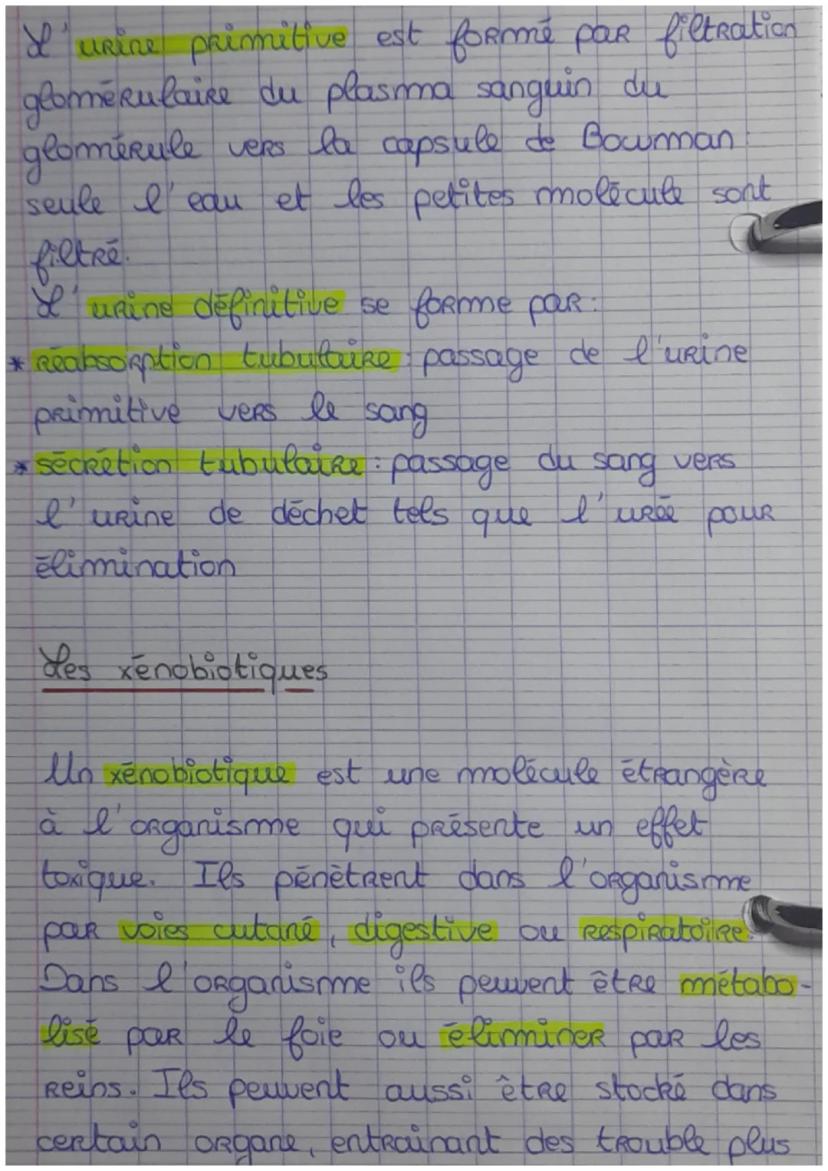 L'urine primitive est formé par filtration
glomérulaire du plasma sanguin du
glomérule vers la capsule de Bowman :
seule l'eau et les petites molécule sont
filtré.
L'urine définitive se forme par :
* réabsorption tubulaire : passage de l'urine
primitive vers le sang
* sécrétion tubulaire : passage du sang vers
l'urine de déchet tels que l'urée pour
élimination
Les xénobiotiques
Un xénobiotique est une molécule étrangère
à l'organisme qui présente un effet
toxique. Ils pénètrent dans l'organisme
par voies cutané, digestive ou respiratoire.
Dans l'organisme ils peuvent être métabo-
lisé par le foie ou éliminer par les
reins. Ils peuvent aussi être stocké dans
certain organe, entrainant des trouble plus